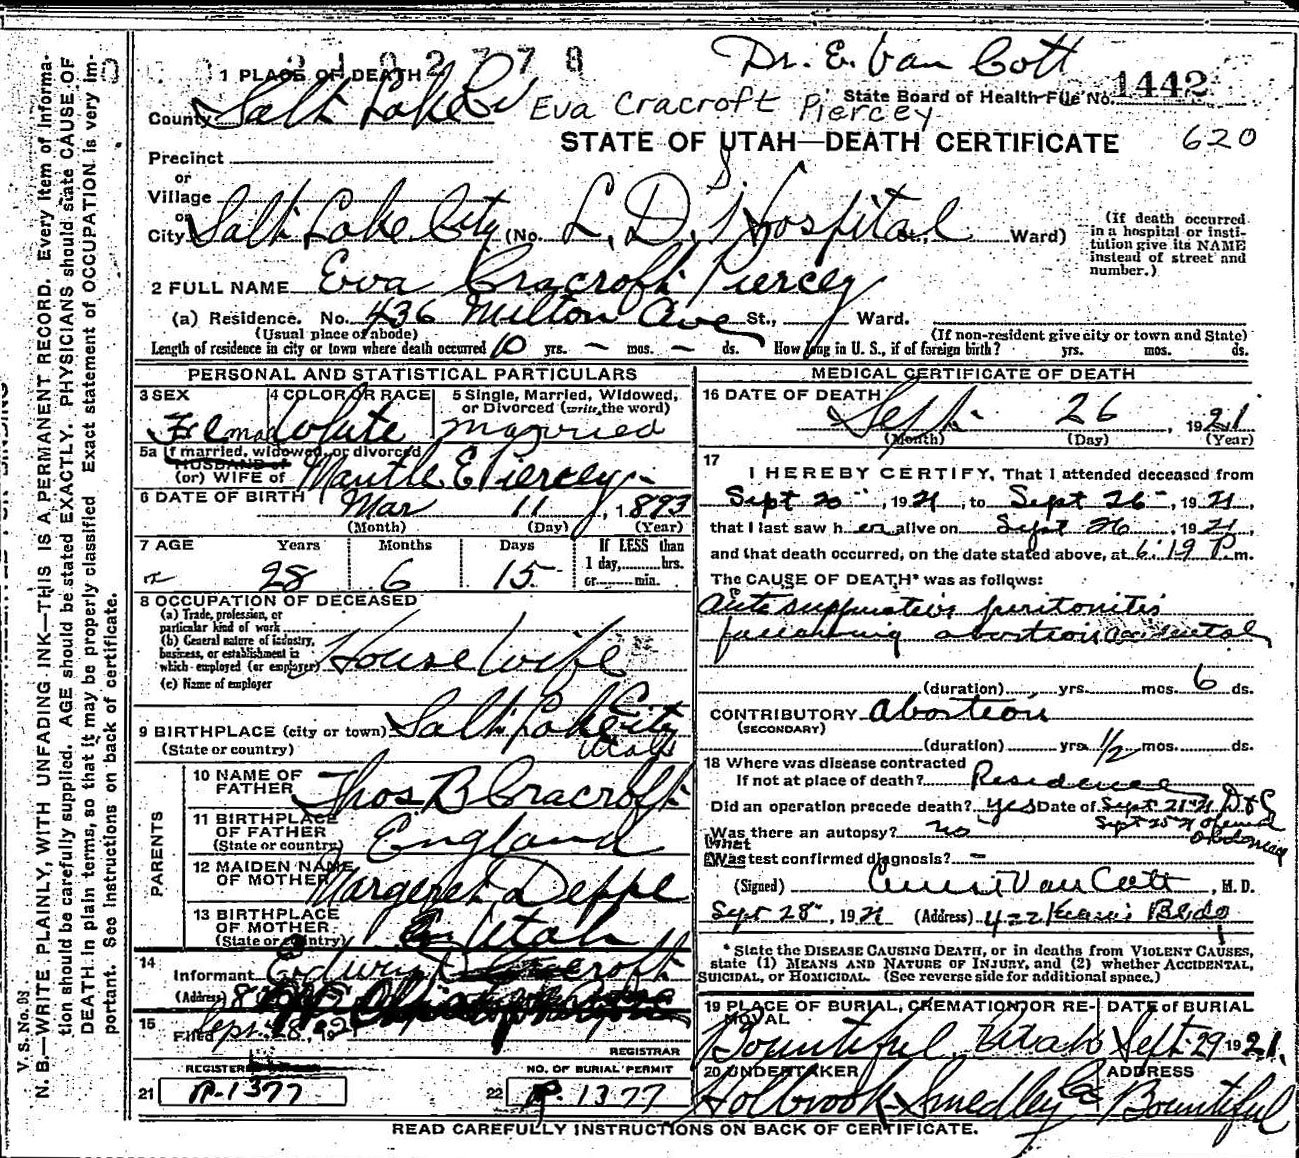 Dr. E. Van Cott
2102778
1 PLACE OF DEATH
State Board of Health File No. 1442
County Salt Lake Eva Cracroft Piercey
STATE OF UTAH—DEATH CERTIFICATE 620
Precinct
or
Village
or
City Salt Lake City (No. L. D. S Hospital St., Ward)
(If death occurred in a hospital or insti-
tution give its NAME instead of street and number.)
2 FULL NAME Eva Cracroft Piercey
(a) Residence. No. 436 Milton Ave St., Ward.
(Usual place of abode) (If non-resident give city or town and State)
Length of residence in city or town where death occurred 10 yrs. – mos. – ds. How long in U. S., if of foreign birth? yrs. mos. ds.
PERSONAL AND STATISTICAL PARTICULARS
3 SEX Female
4 COLOR OR RACE White
5 Single, Married, Widowed, or Divorced (write the word) Married
5a If married, widowed, or divorced
HUSBAND of
(or) WIFE of Mantle E Piercey
6 DATE OF BIRTH Mar 11, 1893
(Month) (Day) (Year)
7 AGE Years Months Days If LESS than
1 day, hrs.
or min.
28 6 15
8 OCCUPATION OF DECEASED
(a) Trade, profession, or
particular kind of work
(b) General nature of industry,
business, or establishment in
which employed (or employer) Housewife
(c) Name of employer
9 BIRTHPLACE (city or town) Salt Lake City
(State or country) Utah
PARENTS
10 NAME OF FATHER Thos B Cracroft
11 BIRTHPLACE OF FATHER England
(State or country)
12 MAIDEN NAME OF MOTHER Margeret Deppe
13 BIRTHPLACE OF MOTHER Utah
(State or country)
14
Informant Cracroft
(Address)
15
Filed Sept. 28, 1921
REGISTRAR
REGISTERED NO. OF BURIAL PERMIT
21 P-1377 22 P. 1377
MEDICAL CERTIFICATE OF DEATH
16 DATE OF DEATH
Sept. 26, 1921
(Month) (Day) (Year)
17
I HEREBY CERTIFY, That I attended deceased from
Sept 20, 1921, to Sept 26, 1921,
that I last saw her alive on Sept 26, 1921,
and that death occurred, on the date stated above, at 6:19 P.m.
The CAUSE OF DEATH* was as follows:
suppurative peritonitis
following abortion accidental
(duration) yrs. mos. 6 ds.
CONTRIBUTORY Abortion
(SECONDARY)
(duration) yrs. 1/2 mos. ds.
18 Where was disease contracted
If not at place of death? Residence
Did an operation precede death? yes Date of Sept 21-21 D & C
Sept 25-21 opened
Was there an autopsy? no abdomen
What
test confirmed diagnosis? –
(Signed) Van Cott, M. D.
Sept 28, 1921 (Address) 422 Kearns Bldg
* State the DISEASE CAUSING DEATH, or in deaths from VIOLENT CAUSES,
state (1) MEANS AND NATURE OF INJURY, and (2) whether ACCIDENTAL,
SUICIDAL, or HOMICIDAL. (See reverse side for additional space.)
19 PLACE OF BURIAL, CREMATION, OR RE-
MOVAL
DATE of BURIAL
Bountiful, Utah Sept. 29 1921.
20 UNDERTAKER ADDRESS
Holbrook-Smedley Co Bountiful
READ CAREFULLY INSTRUCTIONS ON BACK OF CERTIFICATE.
V. S. No. 98
N. B.—WRITE PLAINLY, WITH UNFADING INK—THIS IS A PERMANENT RECORD. Every item of informa-
tion should be carefully supplied. AGE should be stated EXACTLY. PHYSICIANS should state CAUSE OF
DEATH in plain terms, so that it may be properly classified. Exact statement of OCCUPATION is very im-
portant. See instructions on back of certificate.